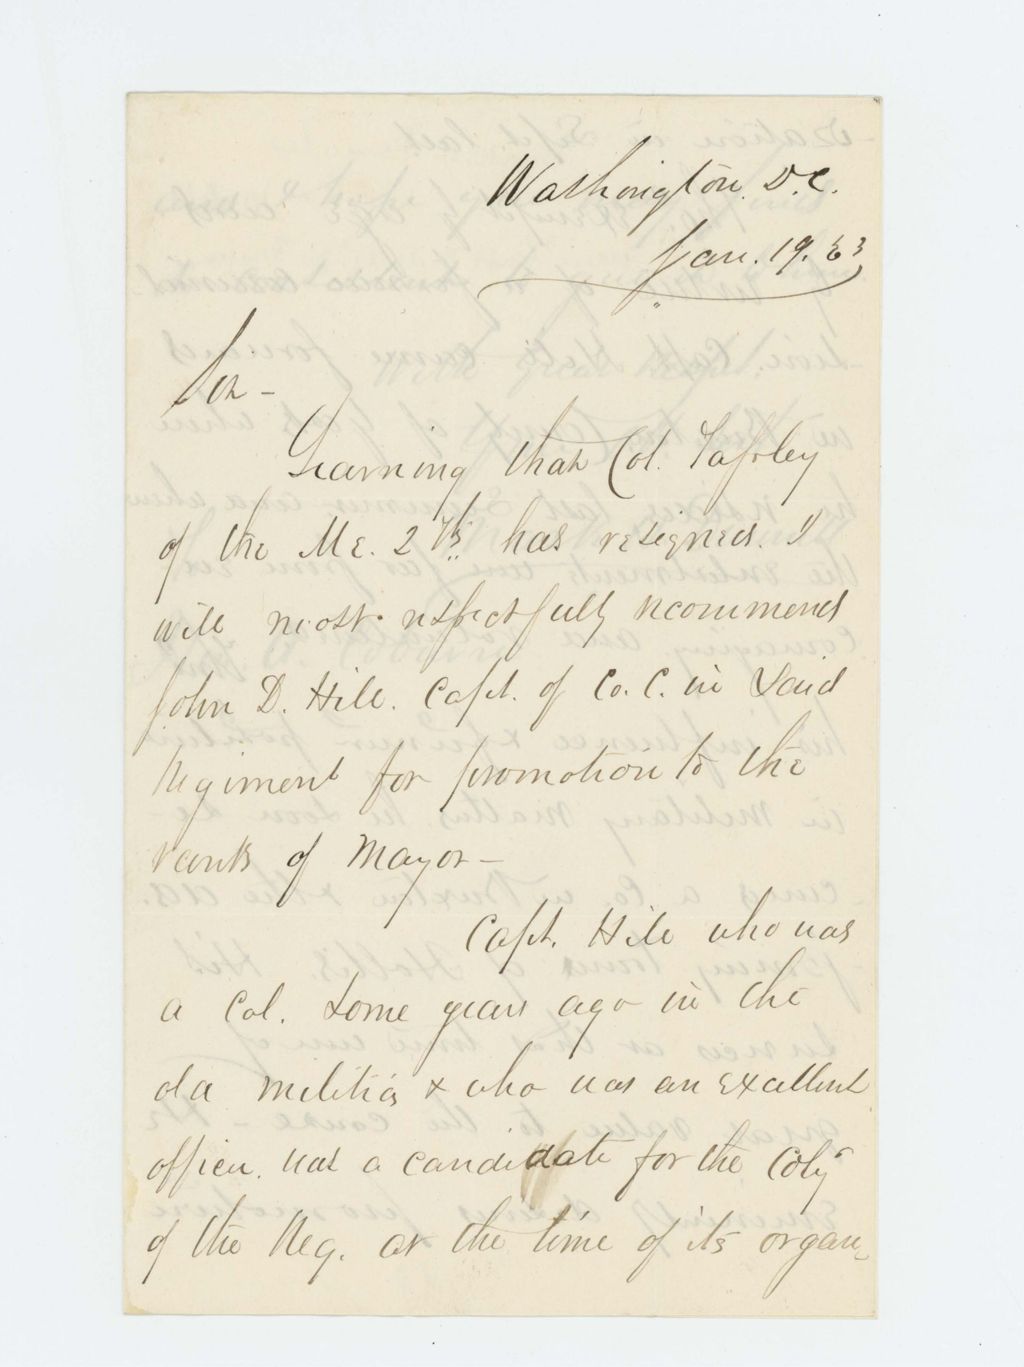 Washington. D.C.
Jan. 19. 63
Sir -
Learning that Col. Tapley
of the Me. 27th has resigned. I
will most respectfully recommend
John D. Hill. Capt. of Co. C. in said
Regiment for promotion to the
rank of Mayor -
Capt. Hill who was
a Col. some years ago in the
old militia & who was an excellent
officer. was a candidate for the Coly
of the Reg. at the time of its organi-